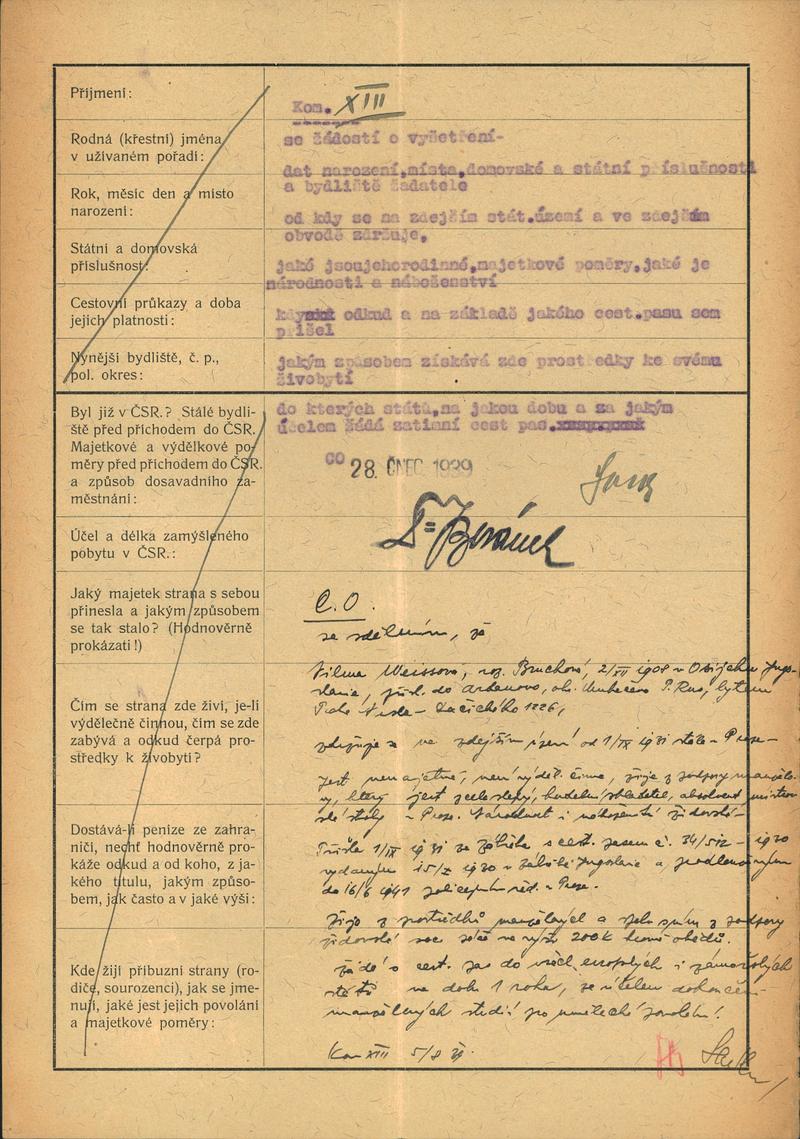 Příjmení:
Kom. XIII
Rodná (křestní) jména
v užívaném pořadí:
se žádostí o vyšetření-
dat narození,místa,domovské a státní příslušnosti
a bydliště žadatele
Rok, měsíc den a místo
narození:
od kdy se na zdejším stát.území a ve zdejším
obvodě zdržuje,
Státní a domovská
příslušnost:
jaké jsoujehorodinné,majetkové poměry,jaké je
národnosti a náboženství
Cestovní průkazy a doba
jejich platnosti:
kdy odkud a na základě jakého cest.pasu sem
přišel
Nynější bydliště, č. p.,
pol. okres:
jakým způsobem získává zde prostředky ke svému
živobytí
Byl již v ČSR.? Stálé bydli-
ště před příchodem do ČSR.
Majetkové a výdělkové po-
měry před příchodem do ČSR.
a způsob dosavadního za-
městnání:
do kterých států,na jakou dobu a za jakým
účelem žádá zatímní cest pas.
28. ČNEC 1939
Účel a délka zamýšleného
pobytu v ČSR.:
Dr Beránek
Jaký majetek strana s sebou
přinesla a jakým způsobem
se tak stalo? (Hodnověrně
prokázati!)
C. O.
se sdělením, že
Vilma Weissová, roz. Bruchová, 2/XII 1908 v
do Ardanovo, P. Rus, bytem
Praha 1226,
Čím se strana zde živí, je-li
výdělečně činnou, čím se zde
zabývá a odkud čerpá pro-
středky k živobytí?
zdržuje se ve zdejším území od 1/IX 1931 stále v Praze-
Jest nemajetná, není výděl. činna, žije z podpory
ny, který jest hudební skladatel, absolvent
školy v Praze. Národnosti i náboženství židovské-
Dostává-li peníze ze zahra-
ničí, nechť hodnověrně pro-
káže odkud a od koho, z ja-
kého titulu, jakým způso-
bem, jak často a v jaké výši:
Přišla 1/IX 1931 ze s cest. pasem č. 34/512 - 1930
vydaným 15/X 1930 v Jugoslavie a prodlouženým
do 16/6 1941 v Praze.
Žije z prostředků manželových a z podpory
židovské soc. ve výši 200K
Kde žijí příbuzní strany (ro-
diče, sourozenci), jak se jme-
nují, jaké jest jejich povolání
a majetkové poměry:
Žádá o cest. pas do všech evropských i zámořských
států na dobu 1 roku, za účelem dokončení
manželových studií
Kom XIII 5/8 39.